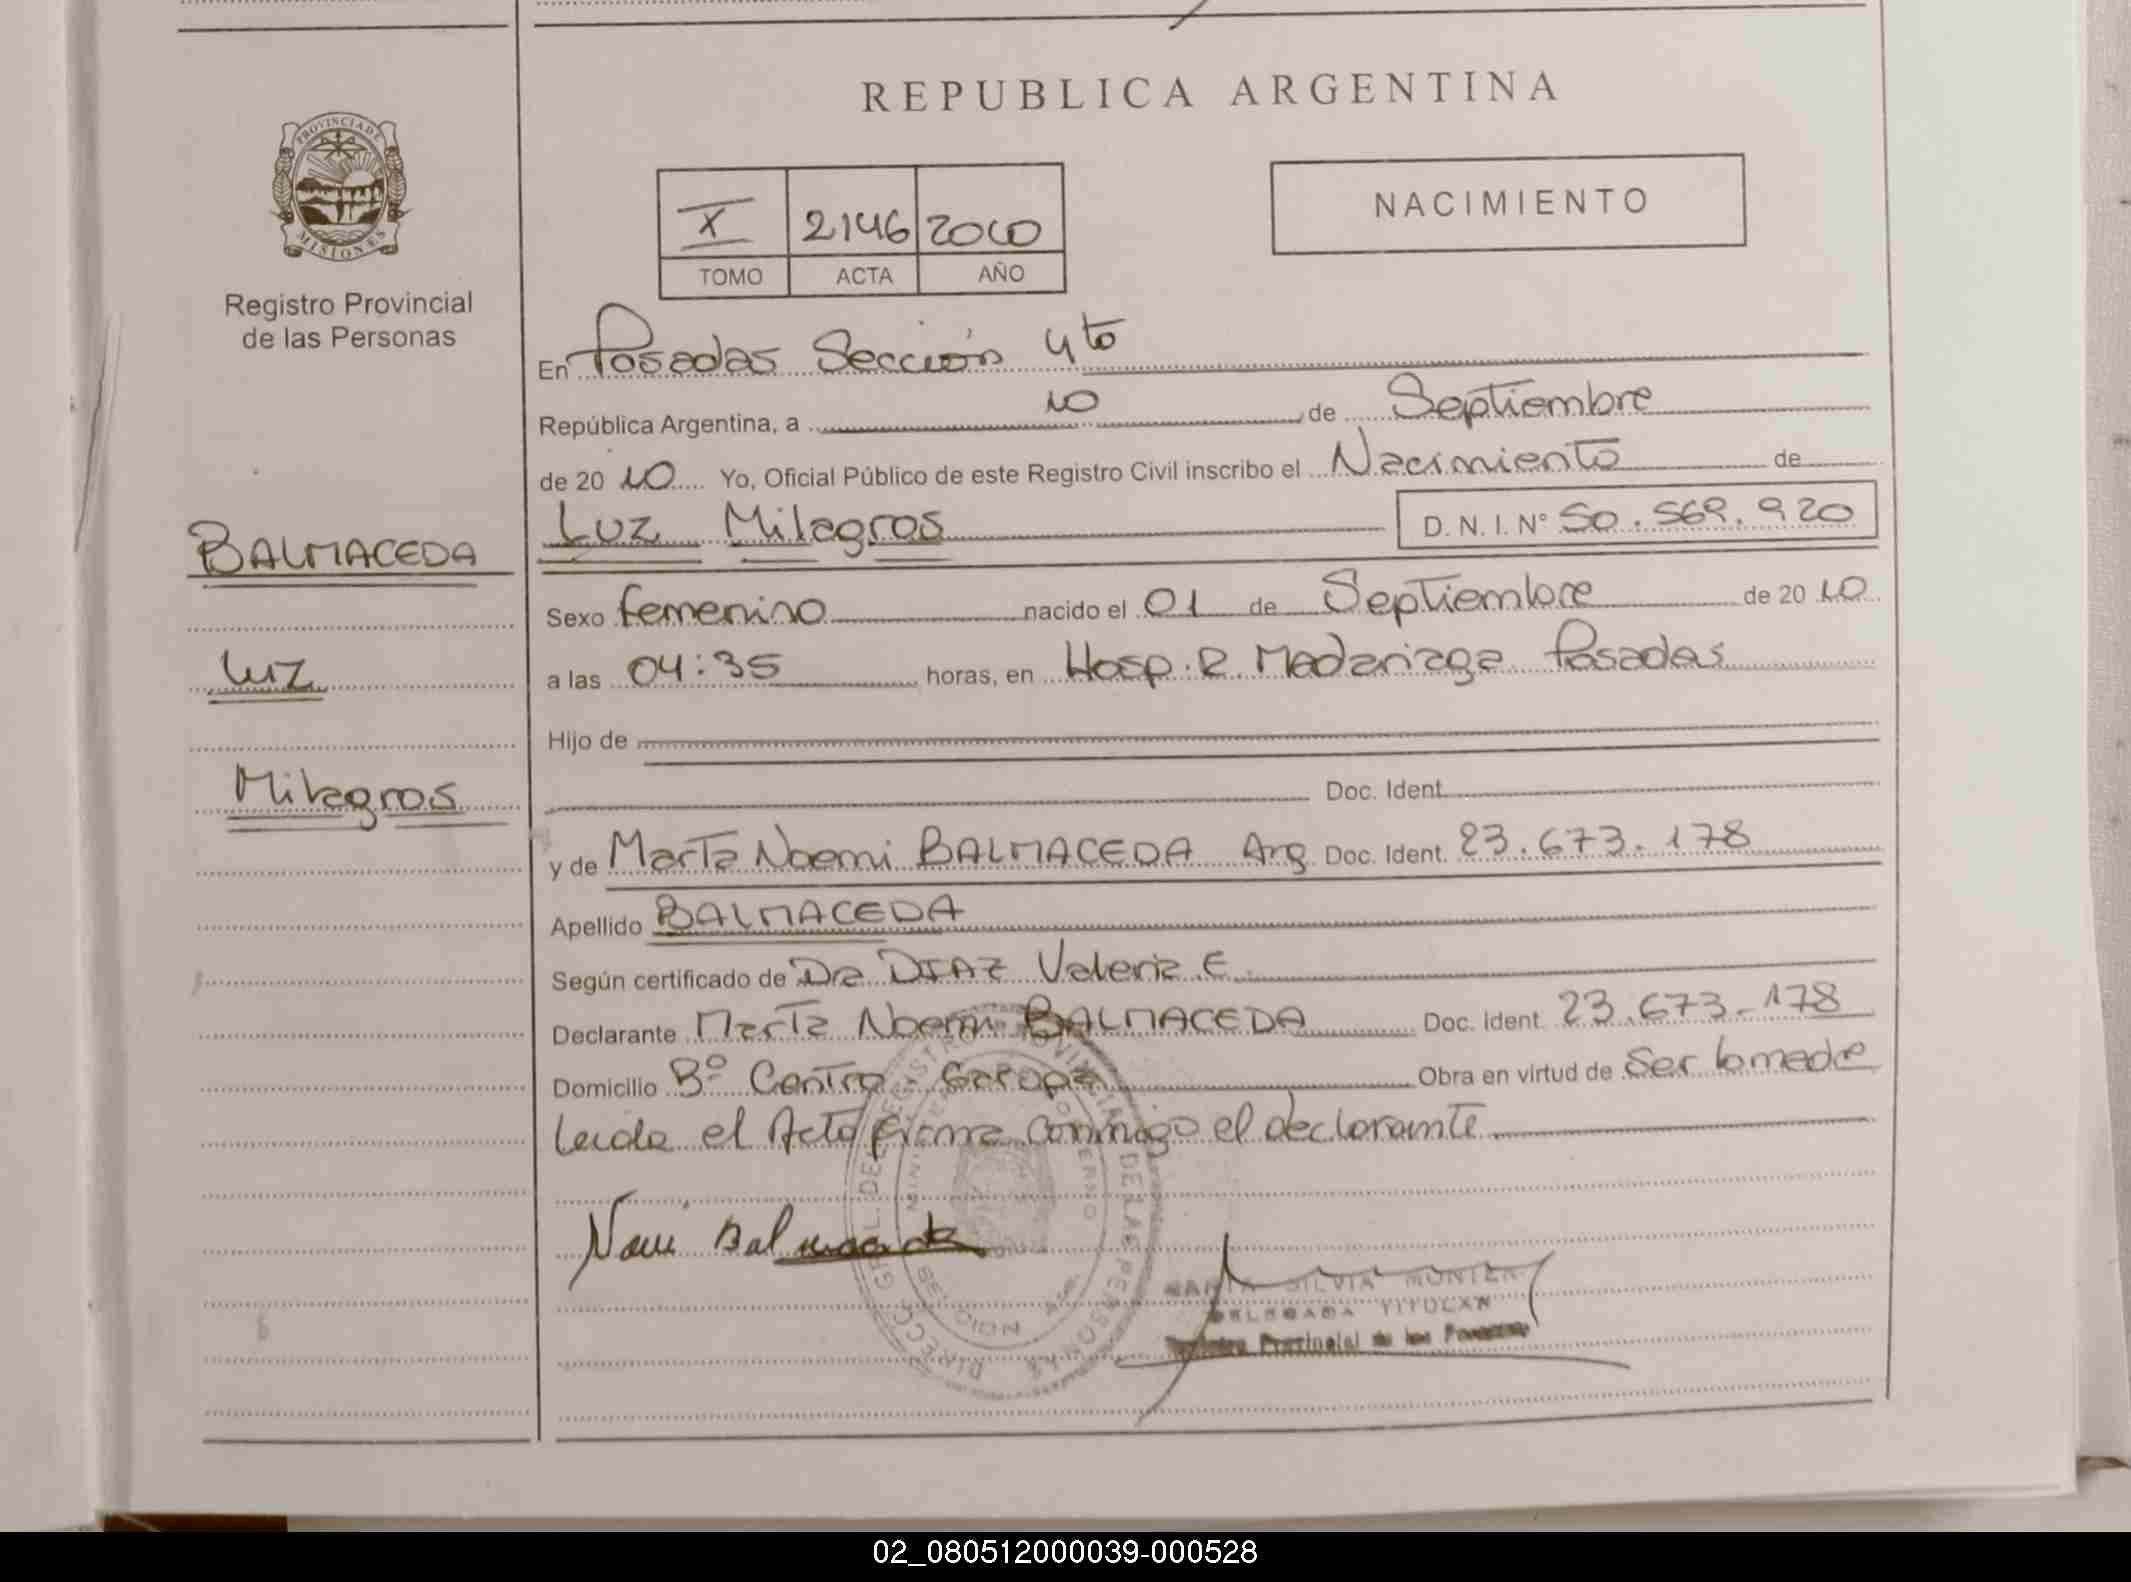 REPUBLICA ARGENTINA
PROVINCIA DE
MISIONES
Registro Provincial
de las Personas
X 2146 2010
TOMO ACTA AÑO
NACIMIENTO
En Posadas Sección 4to
República Argentina, a 10 de Septiembre
de 20 10 Yo, Oficial Público de este Registro Civil inscribo el Nacimiento de
Luz Milagros D. N. I. N° 50.569.920
BALMACEDA
Luz
Milagros
Sexo femenino nacido el 01 de Septiembre de 20 10
a las 04:35 horas, en Hosp. R. Madariaga Posadas
Hijo de
Doc. Ident.
y de Marta Noemi BALMACEDA Arg Doc. Ident. 23.673.178
Apellido BALMACEDA
Según certificado de Dra DIAZ Valeria E.
Declarante Marta Noemi BALMACEDA Doc. Ident. 23.673.178
Domicilio B° Centro - Garupa Obra en virtud de ser la madre
Leida el Acta firma conmigo el declarante
Noemi Balmaceda
SILVIA
DELEGADA TITULAR
Registro Provincial de las Personas
02_080512000039-000528